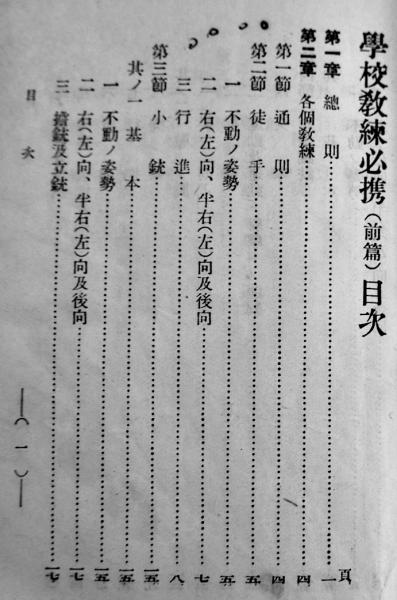 學校教練必携(前篇)目次
第一章 總則……一頁
第二章 各個教練……四
第一節 通則……四
第二節 徒手……五
一 不動ノ姿勢……五
二 右(左)向、半右(左)向及後向……七
三 行進……八
第三節 小銃……一五
其ノ一 基本……一五
一 不動ノ姿勢……一五
二 右(左)向、半右(左)向及後向……一七
三 擔銃及立銃……一七
目次
(一)